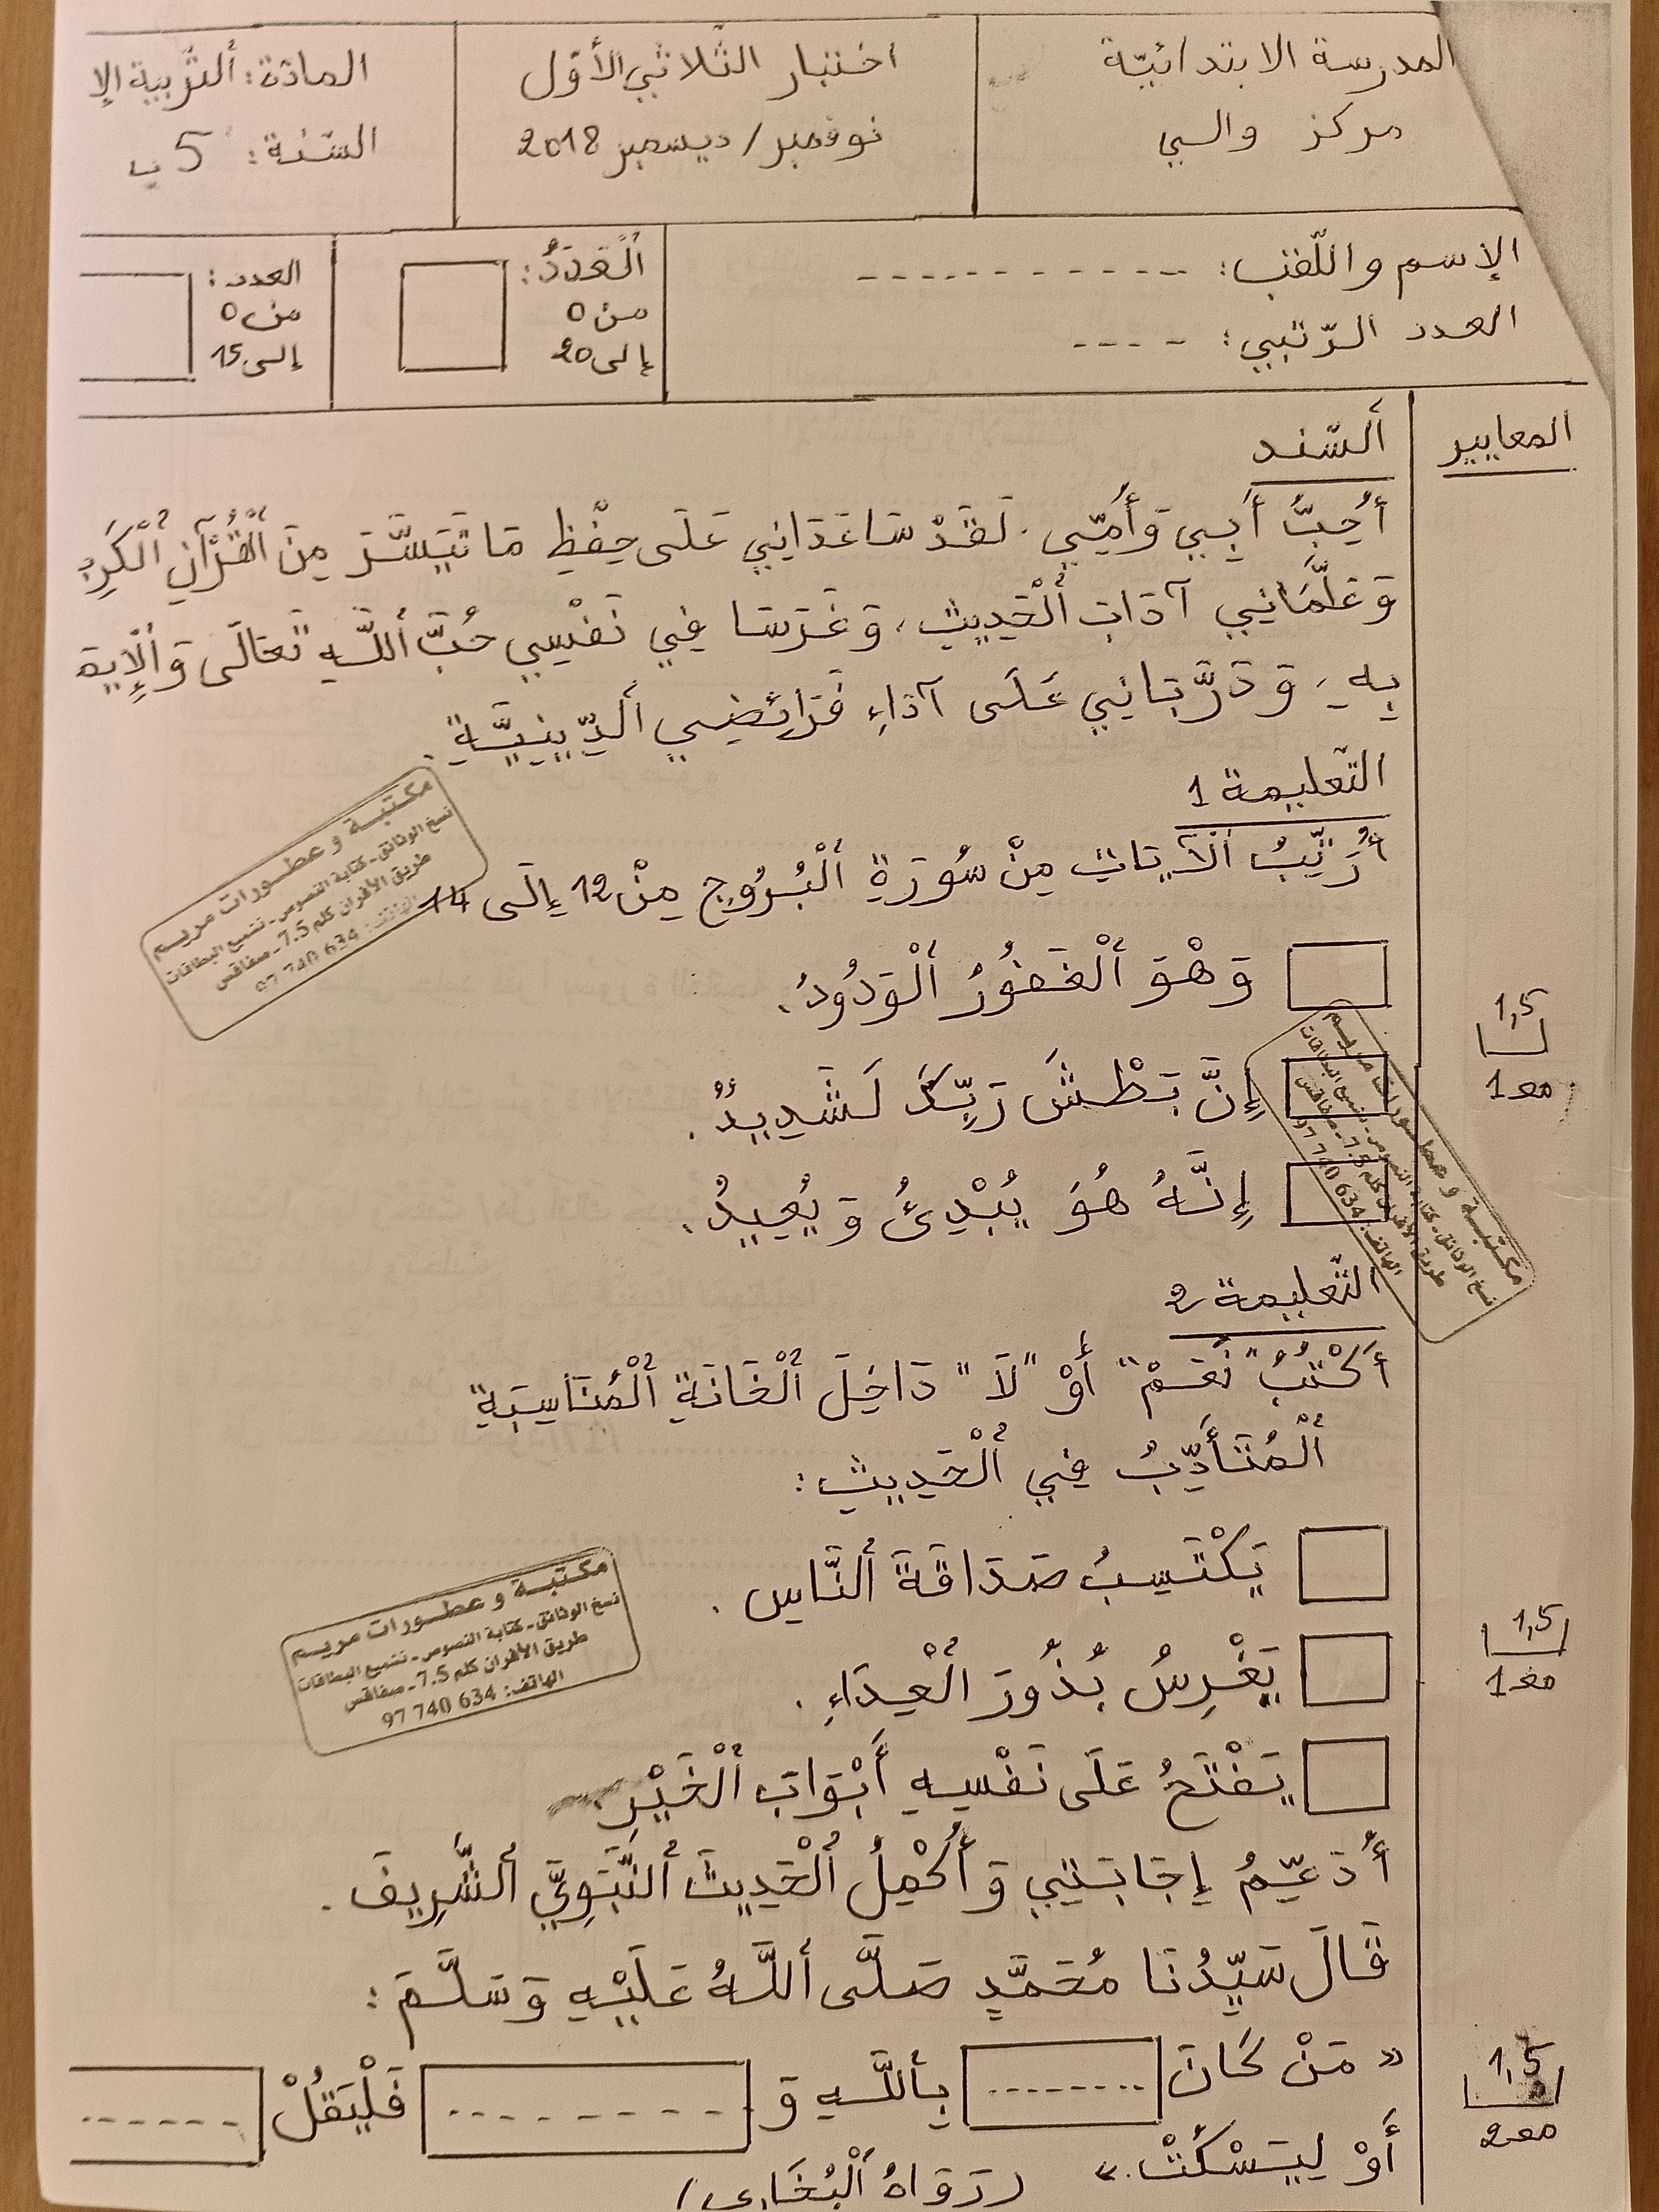 المدرسة الابتدائيّة
مركز والسي
اختبار الثّلاثي الأوّل
نوفمبر/ديسمبر 2018
المادّة: ألتّربية الإ
السّنة: 5 ب
الإسم واللّقب: - - - - - - - - - - -
العدد الرّتبي: - - - -
ٱلْعَدَدُ:
من 0
إلى 20
العدد:
من 0
إلى 15
المعايير
ألسّند
أُحِبُّ أَبِي وَأُمِّي. لَقَدْ سَاعَدَانِي عَلَى حِفْظِ مَا تَيَسَّرَ مِنَ ٱلْقُرْآنِ ٱلْكَرِي
وَعَلَّمَانِي آدَابَ ٱلْحَدِيثِ، وَغَرَسَا فِي نَفْسِي حُبَّ ٱللَّهِ تَعَالَى وَٱلْإِيمَ
بِهِ، وَدَرَّبَانِي عَلَى آدَاءِ فَرَائِضِي ٱلدِّينِيَّةِ.
التّعليمة 1
أُرَتِّبُ ٱلْآيَاتِ مِنْ سُورَةِ ٱلْبُرُوجِ مِنْ 12 إِلَى 14
وَهْوَ ٱلْغَفُورُ ٱلْوَدُودُ.
إِنَّ بَطْشَ رَبِّكَ لَشَدِيدٌ.
إِنَّهُ هُوَ يُبْدِئُ وَيُعِيدُ.
1,5
مع 1
التّعليمة 2
أَكْتُبُ "نَعَمْ" أَوْ "لَا" دَاخِلَ ٱلْخَانَةِ ٱلْمُنَاسِبَةِ
ٱلْمُتَأَدِّبُ فِي ٱلْحَدِيثِ:
يَكْتَسِبُ صَدَاقَةَ ٱلنَّاسِ.
يَغْرِسُ بُذُورَ ٱلْعِدَاءِ.
يَفْتَحُ عَلَى نَفْسِهِ أَبْوَابَ ٱلْخَيْرِ.
1,5
مع 1
أُدَعِّمُ إِجَابَتِي وَأُكْمِلُ ٱلْحَدِيثَ ٱلنَّبَوِيَّ ٱلشَّرِيفَ.
قَالَ سَيِّدُنَا مُحَمَّدٍ صَلَّى ٱللَّهُ عَلَيْهِ وَسَلَّمَ:
« مَنْ كَانَ ........ بِٱللَّهِ وَ - - - - - - - - فَلْيَقُلْ - - - - - -
أَوْ لِيَسْكُتْ.» (رَوَاهُ ٱلْبُخَارِي)
1,5
مع 2
مكتبة و عطورات مريم
نسخ الوثائق - كتابة النصوص - تشميع البطاقات
طريق الأفران كلم 7.5 - صفاقس
الهاتف: 634 740 97
مكتبة و عطورات مريم
نسخ الوثائق - كتابة النصوص - تشميع البطاقات
طريق الأفران كلم 7.5 - صفاقس
الهاتف: 634 740 97
مكتبة و عطورات مريم
نسخ الوثائق - كتابة النصوص - تشميع البطاقات
طريق الأفران كلم 7.5 - صفاقس
الهاتف: 634 740 97